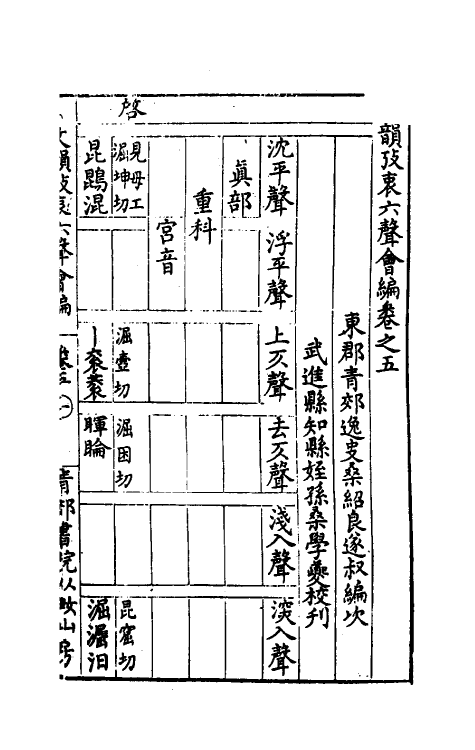 韻攷衷六聲會編卷之五
東郡青郊逸叟桑紹良遂叔編次
武進縣知縣姪孫桑學夔校刊
沈平聲 浮平聲 上仄聲 去仄聲 淺入聲 深入聲
眞部
重科
宮音
見母工
㴾坤切 㴾壼切 㴾困切 昆窟切
昆鵾混 丨衮蓘 睴睔 汨
啓
文韻攷衷六聲會編 卷五 一 青郊書院